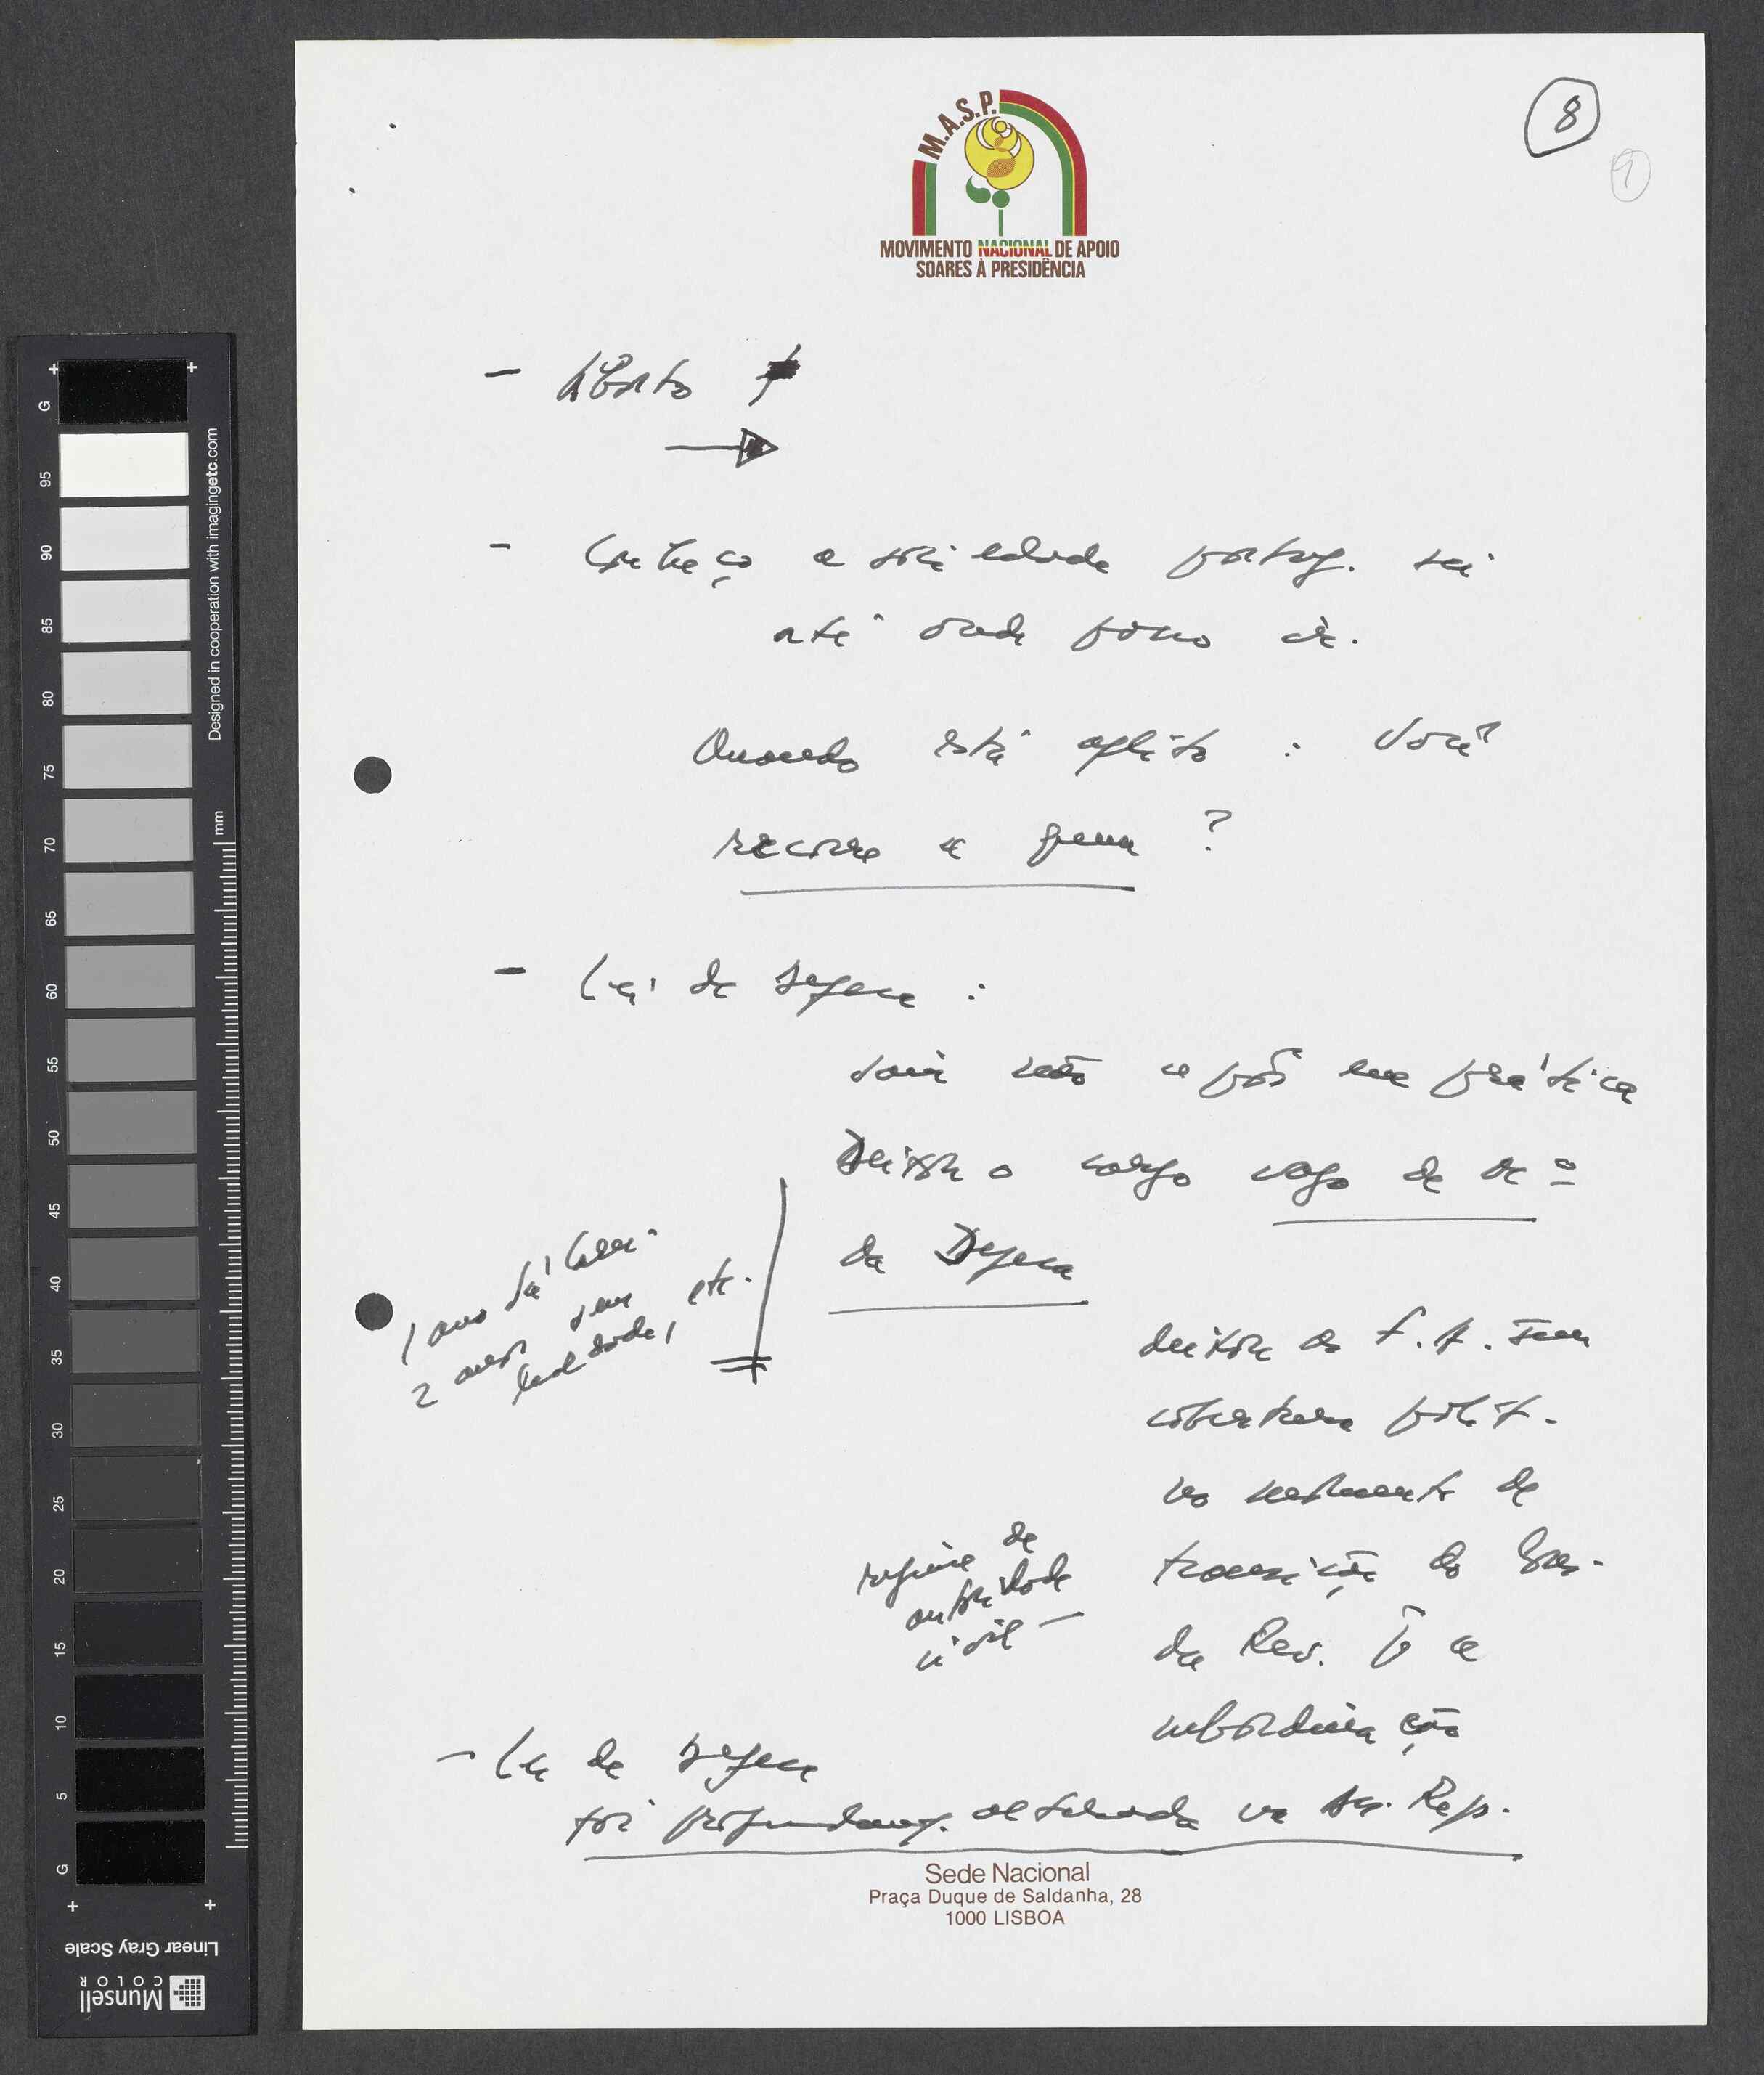 8
9
M.A.S.P.
MOVIMENTO NACIONAL DE APOIO
SOARES À PRESIDÊNCIA
- Aborto
- Conheço a sociedade portug. sei
até onde posso ir.
Quando está aflito : você
recorre a ?
- Lei de defesa :
você não a pôs em prática
Deixou o cargo vago de M.º
da Defesa
1 ano
2 anos sem
lealdade, etc.
deixou as F. A. sem
cobertura polít.
no momento de
transição do
da Rev. p a
subordinação
regime de
autoridade
civil -
- Lei de defesa
foi profundam. alterada na As. Rep.
Sede Nacional
Praça Duque de Saldanha, 28
1000 LISBOA
Designed in cooperation with imagingetc.com
mm
G
95
90
85
80
75
70
65
60
55
50
45
40
35
30
25
20
15
10
5
G
Linear Gray Scale
Munsell
COLOR